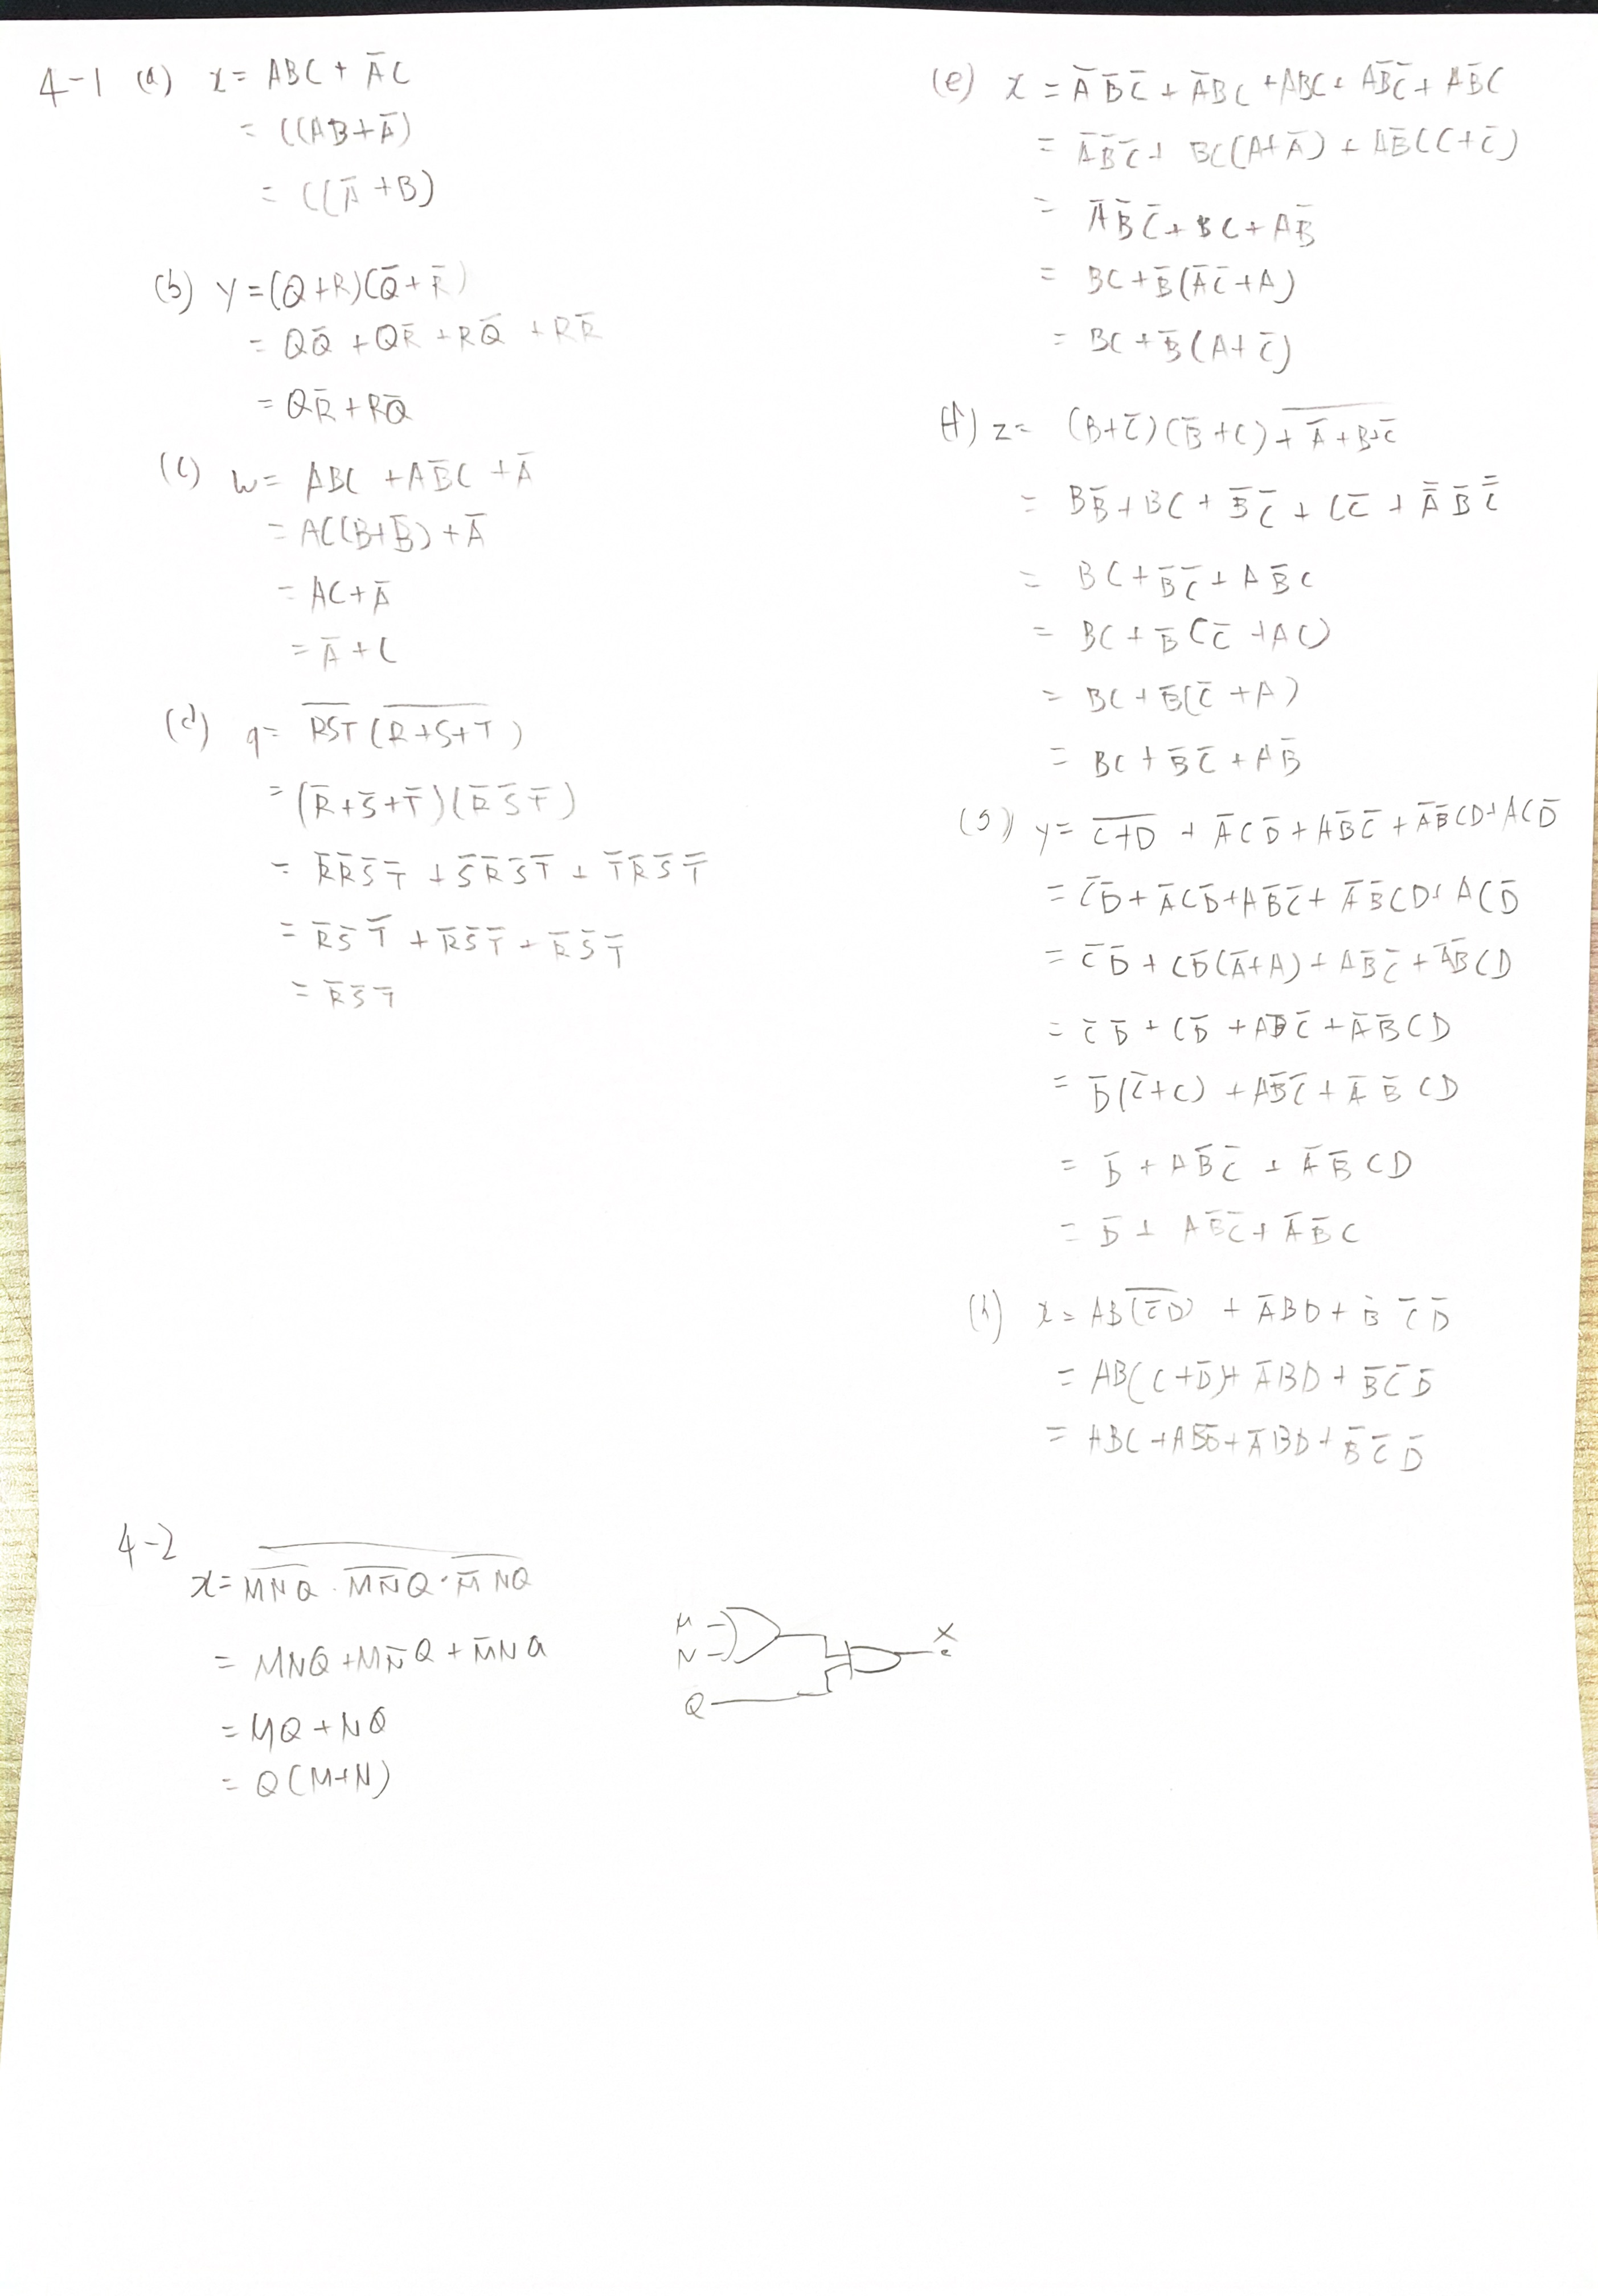 4-1 (a) x = ABC + A̅C
= C(AB+A̅)
= C(A̅+B)
(b) y = (Q+R)(Q̅+R̅)
= QQ̅ + QR̅ + RQ̅ + RR̅
= QR̅ + RQ̅
(c) w = ABC + AB̅C + A̅
= AC(B+B̅) + A̅
= AC + A̅
= A̅ + C
(d) q = \overline{RST} (\overline{R+S+T})
= (R̅+S̅+T̅)(R̅ S̅ T̅)
= R̅R̅S̅T̅ + S̅R̅S̅T̅ + T̅R̅S̅T̅
= R̅S̅T̅ + R̅S̅T̅ + R̅S̅T̅
= R̅S̅T̅
(e) x = A̅B̅C̅ + A̅BC + ABC + AB̅C̅ + AB̅C
= A̅B̅C̅ + BC(A+A̅) + AB̅(C+C̅)
= A̅B̅C̅ + BC + AB̅
= BC + B̅(A̅C̅+A)
= BC + B̅(A+C̅)
(f) z = (B+C̅)(B̅+C) + \overline{A̅+B+C̅}
= BB̅ + BC + B̅C̅ + CC̅ + A̿ B̅ C̿
= BC + B̅C̅ + AB̅C
= BC + B̅(C̅ + AC)
= BC + B̅(C̅ + A)
= BC + B̅C̅ + AB̅
(g) y = \overline{C+D} + A̅CD̅ + AB̅C̅ + A̅B̅CD + ACD̅
= C̅D̅ + A̅CD̅ + AB̅C̅ + A̅B̅CD + ACD̅
= C̅D̅ + CD̅(A̅+A) + AB̅C̅ + A̅B̅CD
= C̅D̅ + CD̅ + AB̅C̅ + A̅B̅CD
= D̅(C̅+C) + AB̅C̅ + A̅B̅CD
= D̅ + AB̅C̅ + A̅B̅CD
= D̅ + AB̅C̅ + A̅B̅C
(h) x = AB(\overline{C̅D}) + A̅BD + B̅ C̅ D̅
= AB(C+D̅) + A̅BD + B̅C̅D̅
= ABC + ABD̅ + A̅BD + B̅C̅D̅
4-2
x = \overline{\overline{MNQ} · \overline{MN̅Q} · \overline{M̅NQ}}
= MNQ + MN̅Q + M̅NQ
= MQ + NQ
= Q(M+N)
M
N
Q
X